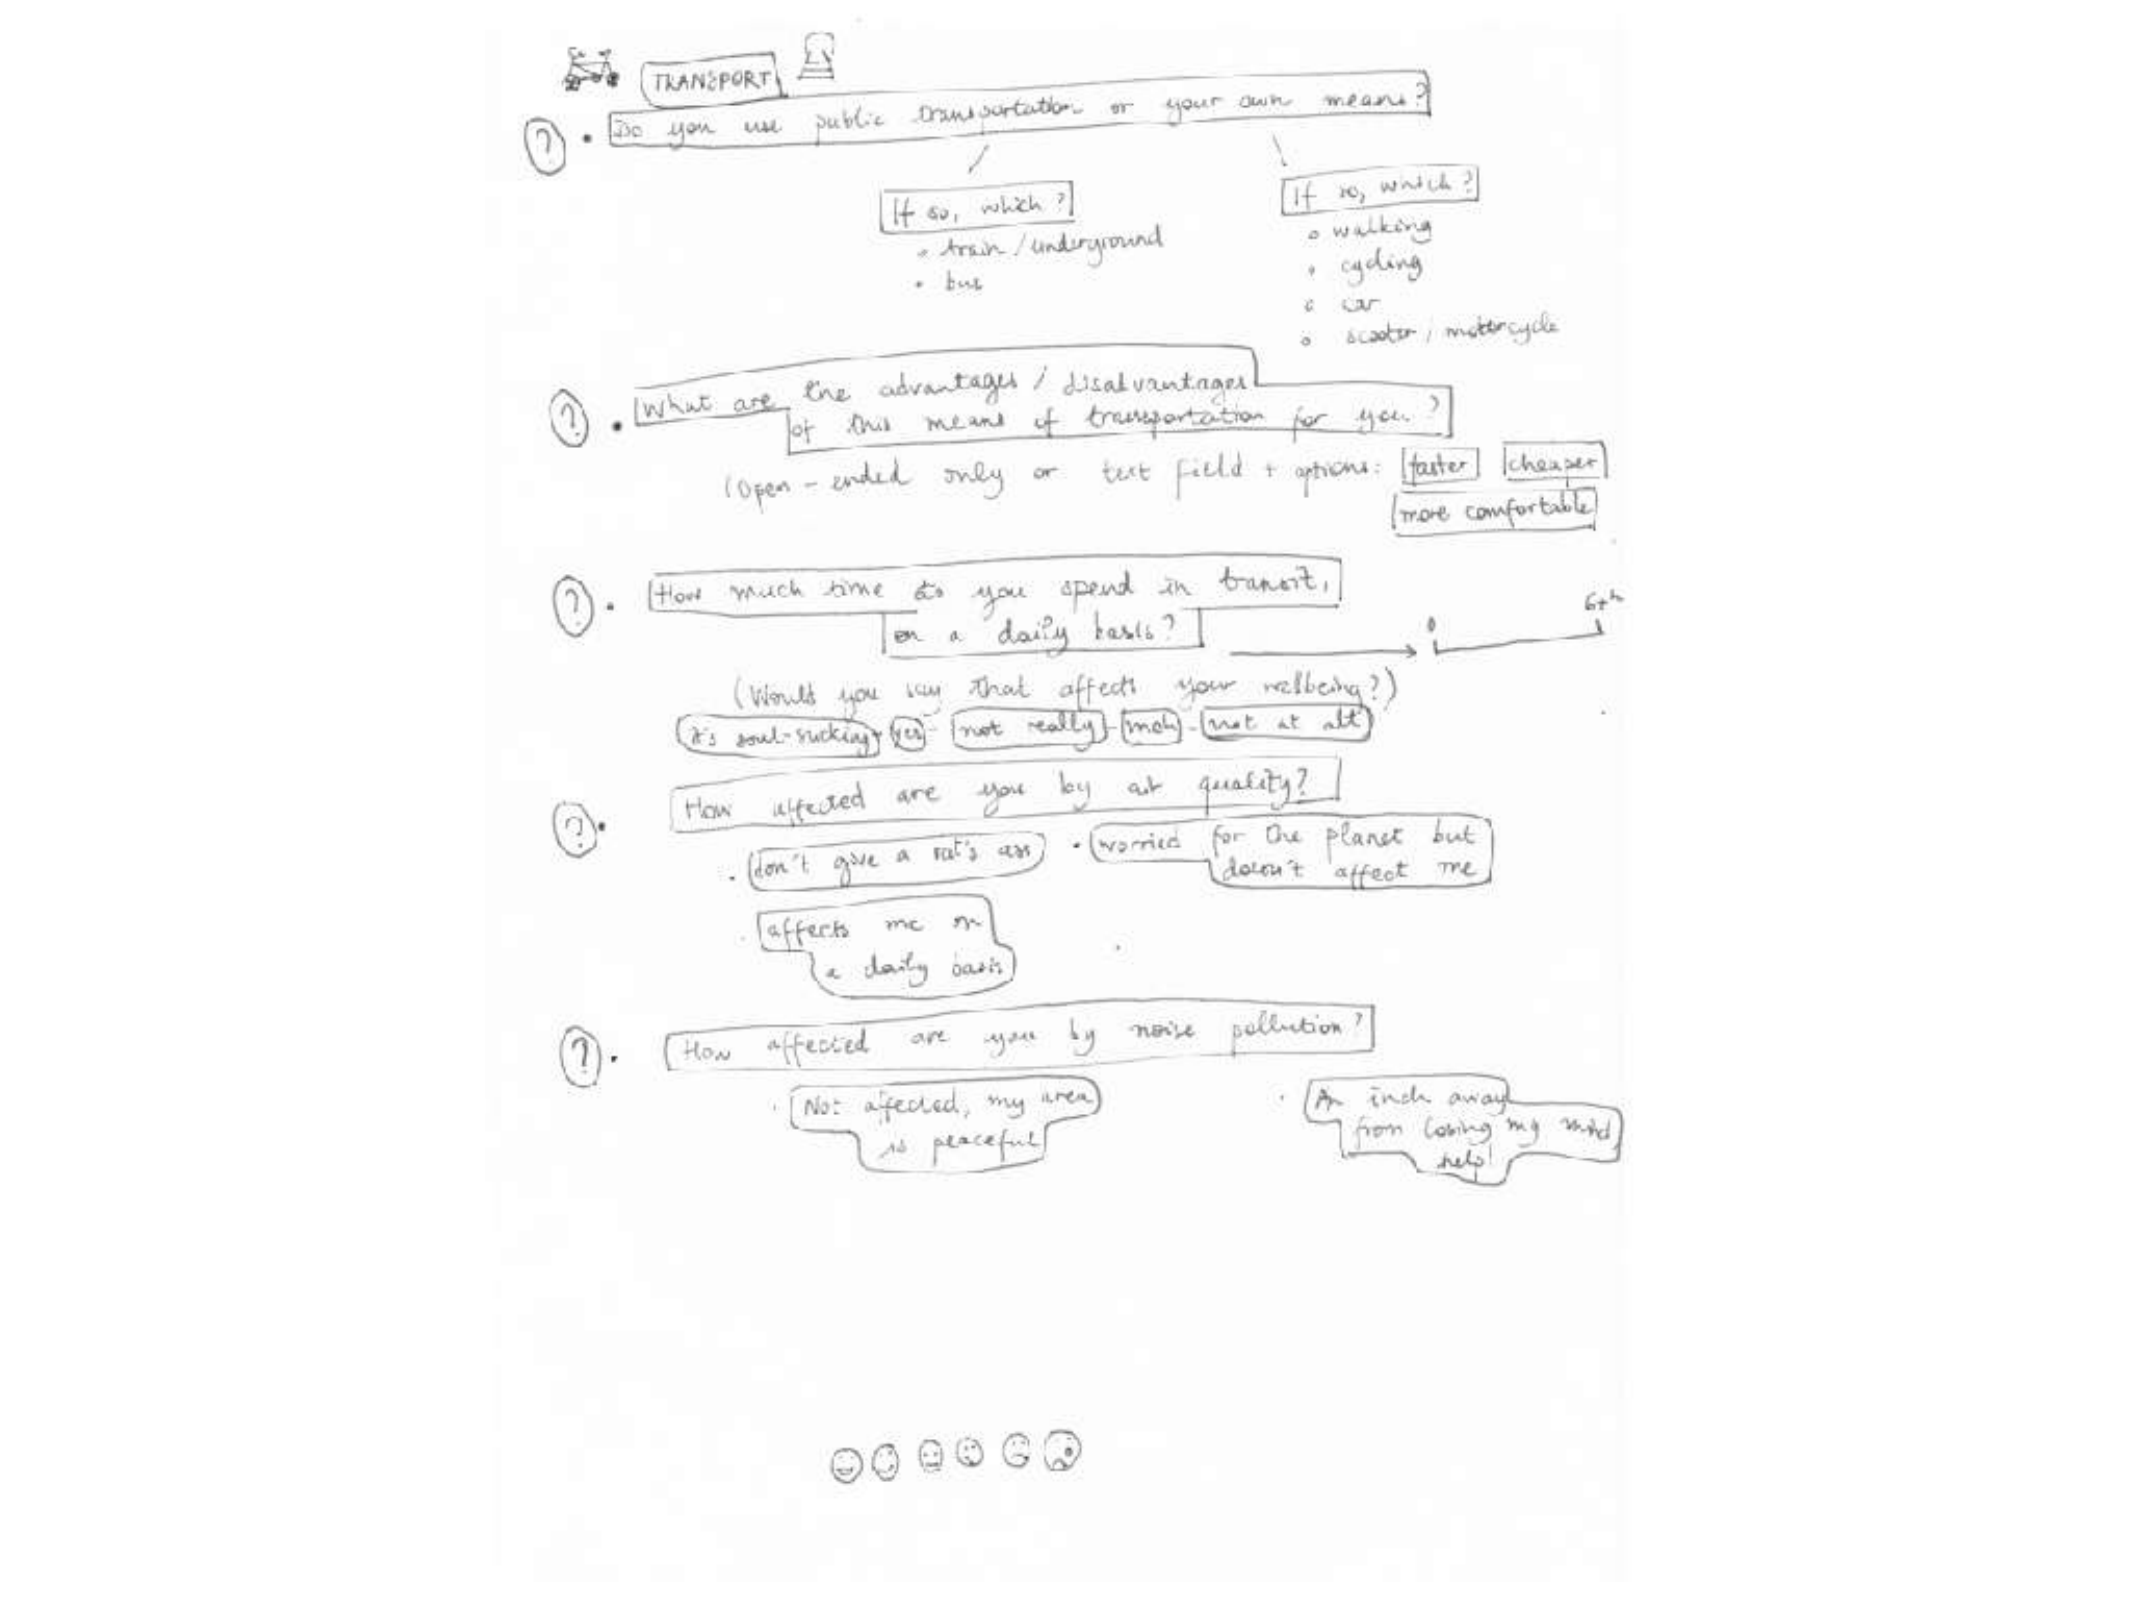 TRANSPORT
? • Do you use public transportation or your own means?
If so, which?
• train / underground
• bus
If so, which?
• walking
• cycling
• car
• scooter / motorcycle
? • What are the advantages / disadvantages
of this means of transportation for you?
(Open-ended only or text field + options: faster cheaper
more comfortable
? • How much time do you spend in transit,
on a daily basis?
0 6+h
(Would you say that affects your wellbeing?)
it's soul-sucking - yes - not really - meh - not at all
? • How affected are you by air quality?
• don't give a rat's ass • worried for the planet but
doesn't affect me
• affects me on
a daily basis
? • How affected are you by noise pollution?
• Not affected, my area
is peaceful
• An inch away
from losing my mind,
help!